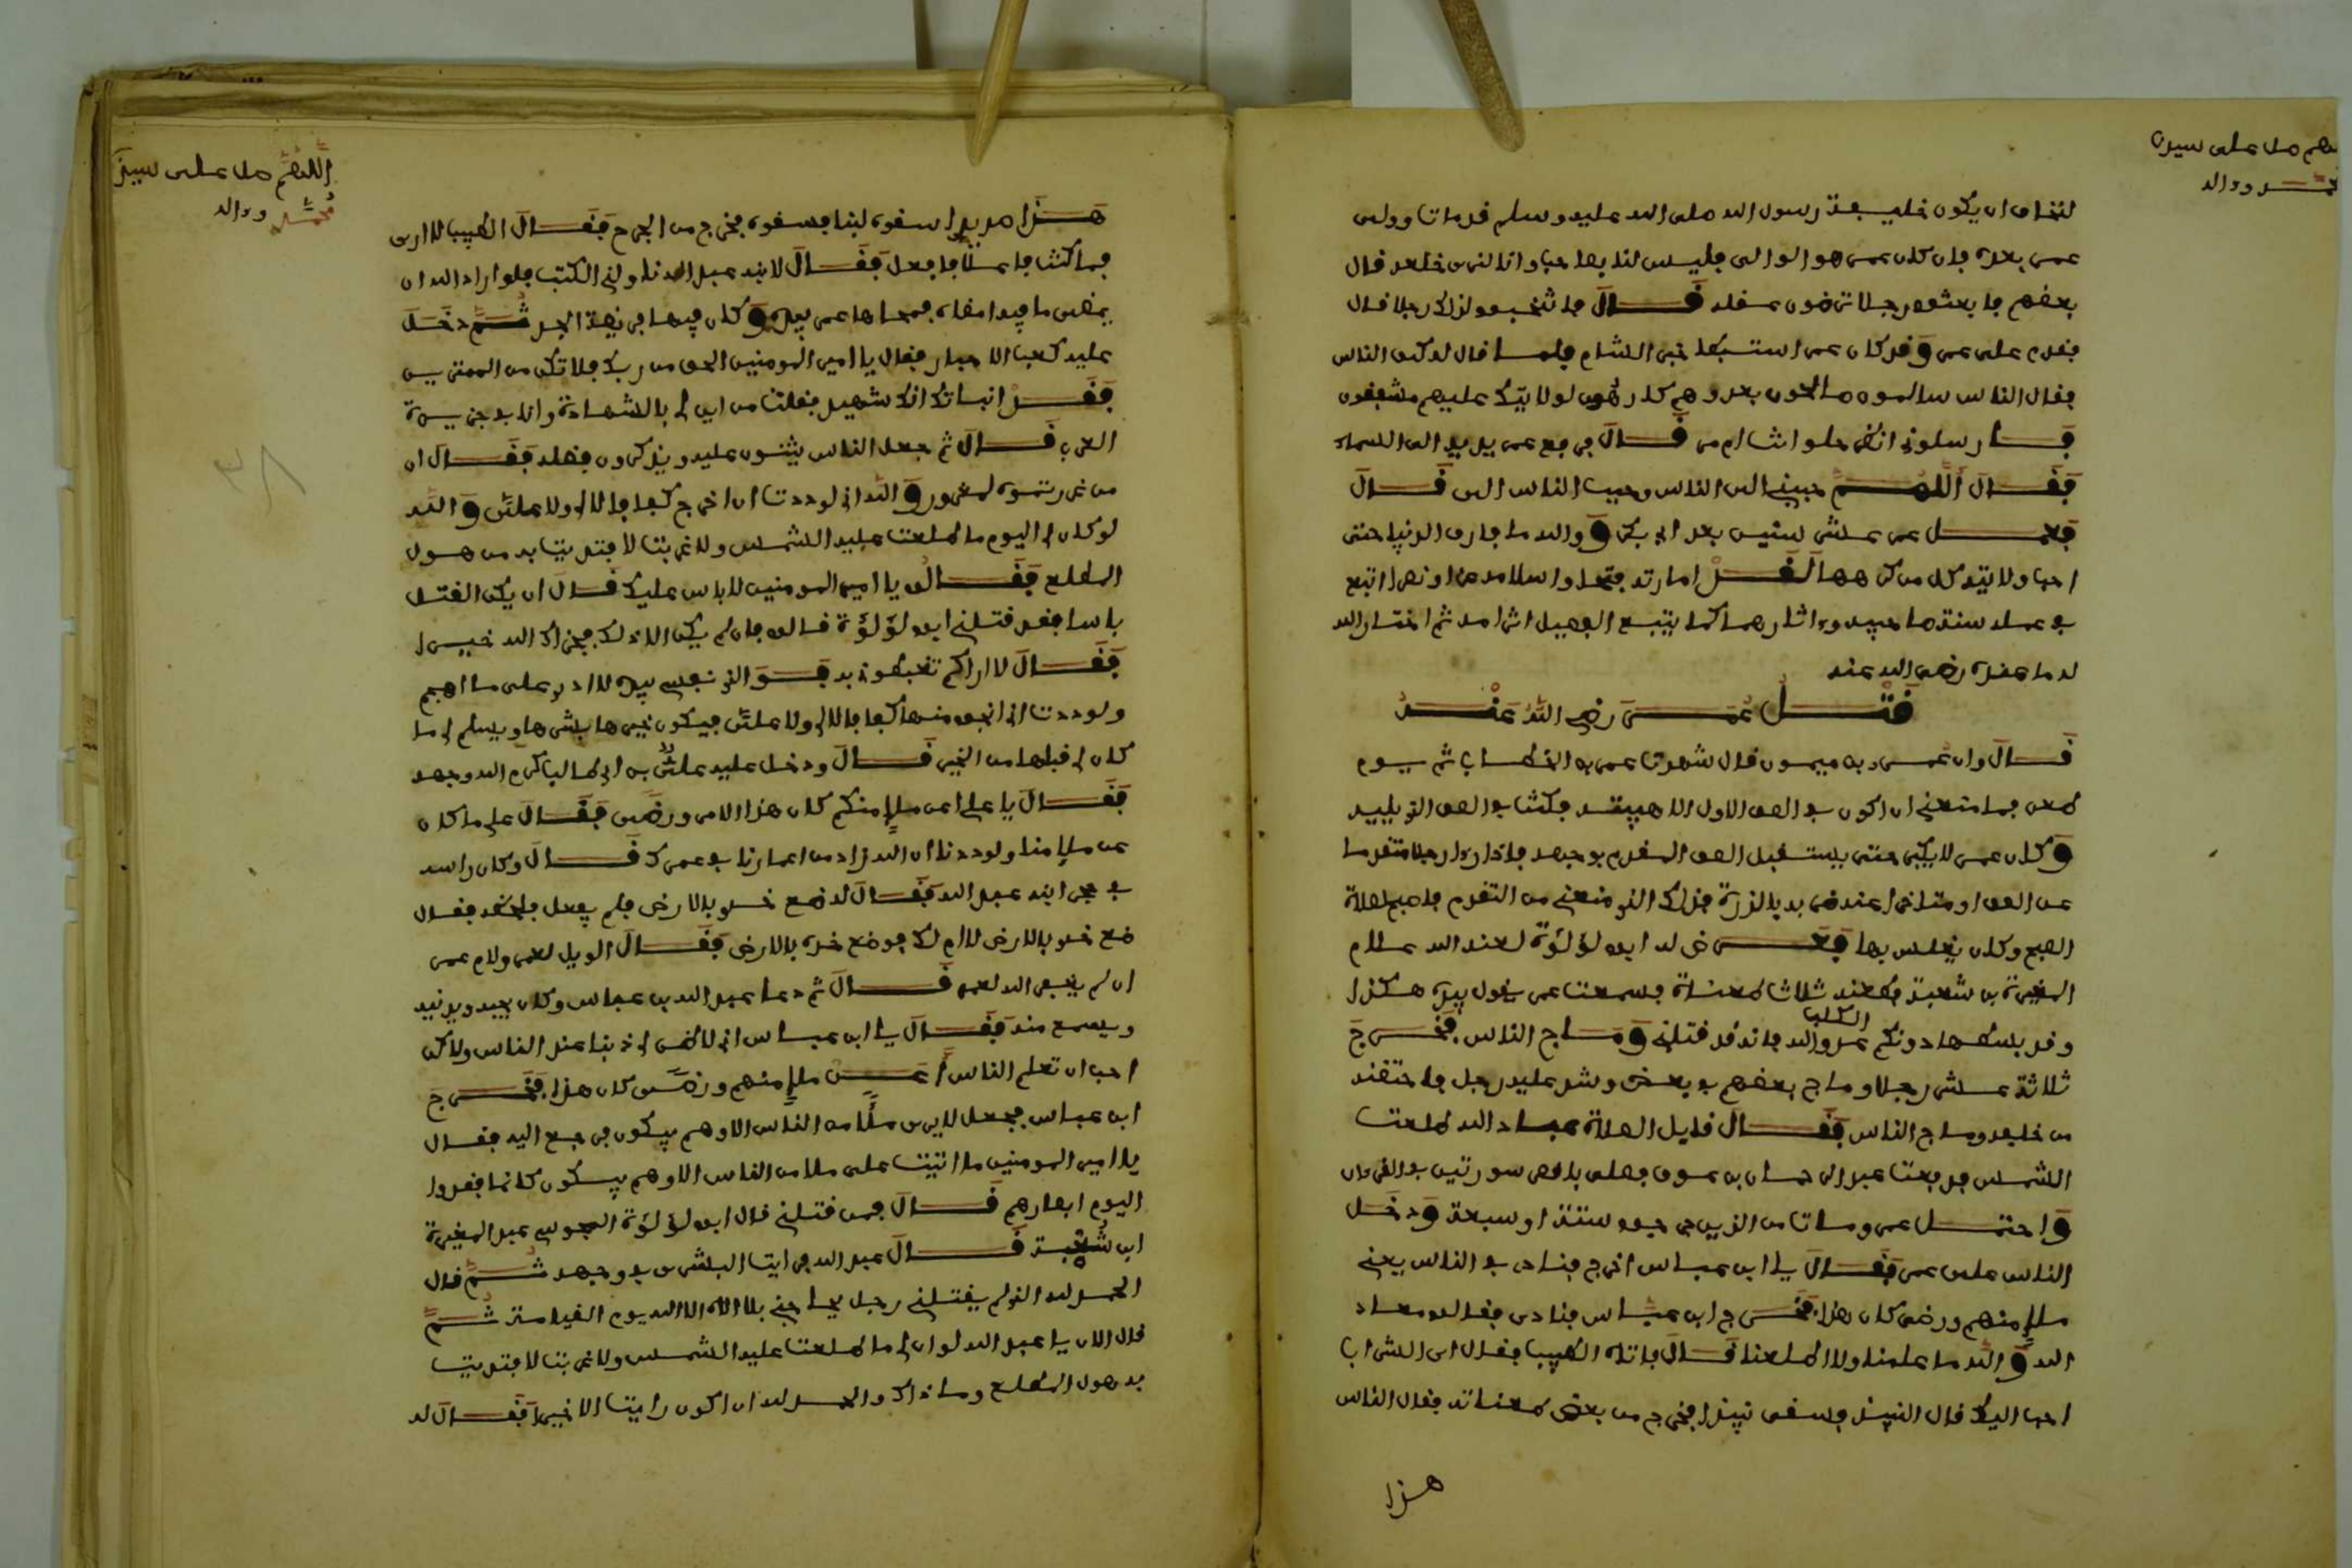 اللهم صل على سيدنا
محمد وءاله
لنخاف ان يكون خليفة رسول الله صلى الله عليه وسلم قد مات وولى
عمر بعده فان كان عمر هو الوالى فليس لنا بصاحب وانا لنرى خلعه قال
بعضهم فابعثوا رجلا ترضون عقله قال فانتخبوا لذلك رجلا فقال
فقدم على عمر وقد كان عمر استبطا خبر الشام فلما قال له كيف الناس
فقال الناس سالمون صالحون وهم كارهون لولايتك عليهم مشفقون
فارسلونى انظر حلو انت ام مر قال فرفع عمر يديه الى السماء
فقال اللهم حببنى الى الناس وحبب الناس الى قال
فعمل عمر عشر سنين بعد ابى بكر ووالله ما فارق الدنيا حتى
احب ولايته كل من كرهها لقد امارته فتحا واسلامه عزا ونصرا اتبع
فى عمله سنة صاحبيه وءاثارهما كما يتبع الفصيل اثر امه ثم اختار الله
له ما عنده رضى الله عنه
قتل عمر رضى الله عنه
قال وان عمرو بن ميمون قال شهدت عمر بن الخطاب ثم يوم
طعن فما منعنى ان اكون فى الصف الاول الا هيبته فكنت فى الصف الذى يليه
وكان عمر لا يكبر حتى يستقبل الصف المقدم بوجهه فاذا رءا رجلا متقدما
من الصف او متاخرا عنه ضربه بالدرة فذلك الذى منعنى من التقدم فاجـ لصلاة
الصبح وكان يغلس بها فعرض له ابو لؤلؤة لعنه الله غلام
المغيرة بن شعبة فطعنه ثلاث طعنات فسمعت عمر يقول بيده هكذا
وقد بسطها دونكم الكلب عدو الله فانه قد قتلنى وماج الناس فخرج
ثلاثة عشر رجلا وماج بعضهم فى بعض وشد عليه رجل فاحتضنه
من خلفه وماج الناس فقال قايل الصلاة عباد الله طلعت
الشمس فدفعت عبد الرحمان بن عوف فصلى باقصر سورتين فى القرءان
واحتمل عمر ومات من الذين جرحوا ستة او سبعة ودخل
الناس على عمر فقال يا ابن عباس اخرج فناد فى الناس يعنى
ملإ منهم ورضى كان هذا فخرج ابن عباس فنادى فقالوا معاذ
الله والله ما علمنا ولا اطلعنا قال فاتاه الطبيب فقال اى الشراب
احب اليك قال النبيذ فسقى نبيذا فخرج من بعض طعناته فقال الناس
هذا
اللهم صل على سيدنا
محمد وءاله
هذا صديد اسقوه لبنا فسقوه فخرج من الجرح فقال الطبيب لا ارى
فما كنت فاعلا فافعل فقال لابنه عبد الله ناولنى الكتب فلو اراد الله ان
يمضى ما فيه امضاه فمحاها عمر بيده وكان فيها فريضة الجد ثم دخل
عليه كعب الاحبار فقال يا امير المومنين الحق من ربك فلا تكن من الممترين
فقد انباتك انك شهيد فقلت من اين لى بالشهادة وانا بجزيرة
العرب قال ثم جعل الناس يثنون عليه ويذكرون فضله فقال ان
من غررتموه لمغرور والله انى لوددت ان اخرج كفافا لا لى ولا على والله
لو كان لى اليوم ما طلعت عليه الشمس ولا غربت لافتديت به من هول
المطلع فقالوا يا امير المومنين لا باس عليك قال ان يكن القتل
باسا فقد قتلنى ابو لؤلؤة قالوا فان لم يكن الا ذلك فجزاك الله خيرا
فقال لا اراكم تغبطونى به فو الذى نفسى بيده لا ادرى على ما اهجم
ولوددت انى انجو منها كفافا لا لى ولا على فيكون خيرها بشرها ويسلم لى ما
كان لى قبلها من الخير قال ودخل عليه على بن ابى طالب كرم الله وجهه
فقال يا على اعن ملإ منكم كان هذا الامر ورضى فقال على ما كان
عن ملإ منا ولوددنا ان الله زاد من اعمارنا فى عمرك قال وكان راسه
فى حجر ابنه عبد الله فقال له ضع خدى بالارض فلم يفعل فلحظه فقال
ضع خدى بالارض لا ام لك فوضع خده بالارض فقال الويل لعمر ولام عمر
ان لم يغفر الله لعمر قال ثم دعا عبد الله بن عباس وكان يحبه ويدنيه
ويسمع منه فقال يا ابن عباس انى لاظن لى ذنبا عند الناس ولاكن
احب ان تعلم الناس أعن ملإ منهم ورضى كان هذا فخرج
ابن عباس فجعل لا يرى ملأ من الناس الا وهم يبكون فرجع اليه فقال
يا امير المومنين ما اتيت على ملا من الناس الا وهم يبكون كانما فقدوا
اليوم ابصارهم قال فمن قتلنى قال ابو لؤلؤة المجوسى عبد المغيرة
ابن شعبة قال عبد الله فرايت البشرى فى وجهه ثم قال
الحمد لله الذى لم يقتلنى رجل يحاجنى بلا اله الا الله يوم القيامة ثم
قال الان يا عبد الله لو ان لى ما طلعت عليه الشمس ولا غربت لافتديت
به هول المطلع وما ذاك والحمد لله ان اكون رايت الا خيرا فقال له